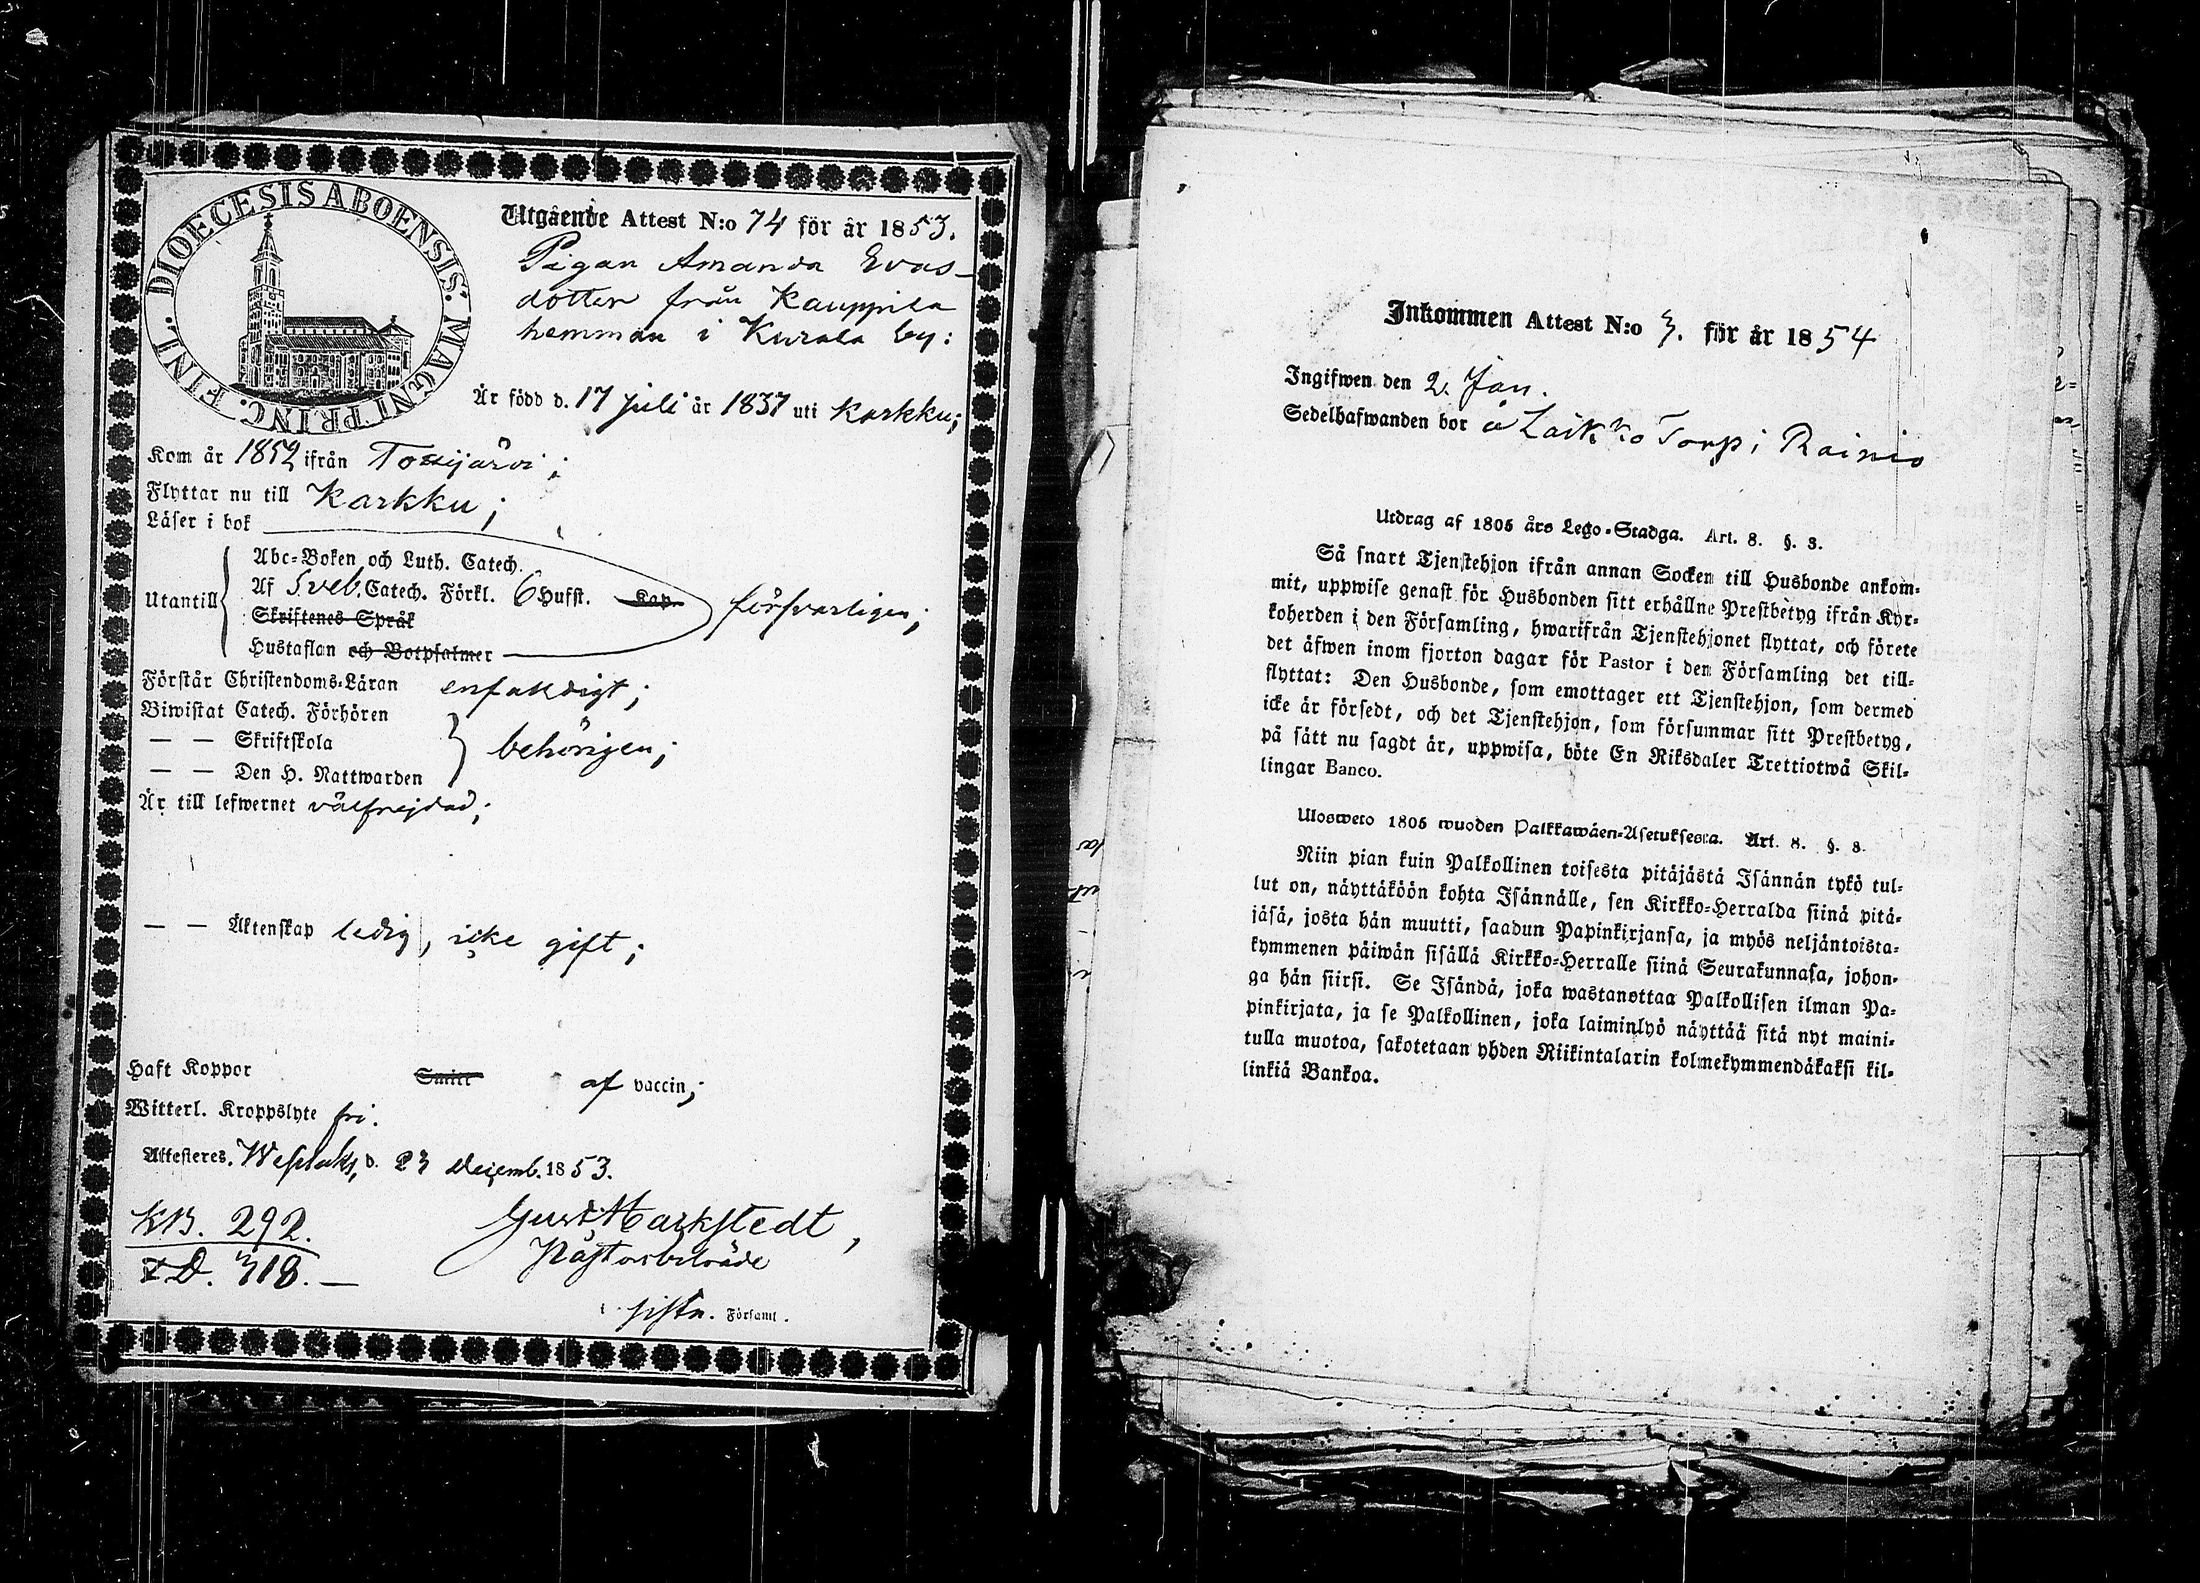 DIOECESIS ABOENSIS. MAGNI PRINC. FINL.
Utgående Attest N:o 74 för år 1853.
Pigan Amanda Evas-
dotter från Kauppila
hemman i Kurala by:
Är född d. 17 Juli år 1837 uti Karkku;
Kom år 1852 ifrån
Flyttar nu till Karkku;
Läser i bok
Utantill
Abc-Boken och Luth. Catech.
Af Sveb. Catech. Förkl. 6 Hufst. Kap. försvarligen;
Skriftenes Språk
Hustaflan och Botpsalmer
Förstår Christendoms-Läran enfaldigt;
Biwistat Catech. Förhören
— — Skriftskola behörigen;
— — Den H. Nattwarden
Är till lefwernet välfrejdad;
— — Äktenskap ledig, icke gift;
Haft Koppor Smitt af vaccin;
Witterl. Kroppslyte fri.
Attesteres. Wesilaks, d. 23 Decemb. 1853.
KB. 292.
D. 318. —
Gust. Markstedt,
i sista. Församl.
Inkommen Attest N:o 3. för år 1854
Ingifwen den 2. Jan.
Sedelhafwanden bor å Laikko Torp i Rainio
Utdrag af 1805 års Lego-Stadga. Art. 8. §. 3.
Så snart Tjenstehjon ifrån annan Socken till Husbonde ankom-
mit, uppwise genast för Husbonden sitt erhållne Prestbetyg ifrån Kyr-
koherden i den Församling, hwarifrån Tjenstehjonet flyttat, och förete
det äfwen inom fjorton dagar för Pastor i den Församling det till-
flyttat: Den Husbonde, som emottager ett Tjenstehjon, som dermed
icke är försedt, och det Tjenstehjon, som försummar sitt Prestbetyg,
på sätt nu sagdt är, uppwisa, böte En Riksdaler Trettiotwå Skil-
lingar Banco.
Ulosweto 1805 wuoden Palkkawäen-Asetuksesta. Art. 8. §. 8.
Niin pian kuin Palkollinen toisesta pitäjästä Isännän tykö tul-
lut on, näyttäköön kohta Isännälle, sen Kirkko-Herralda siinä pitä-
jäsä, josta hän muutti, saadun Papinkirjansa, ja myös neljäntoista-
kymmenen päiwän sisällä Kirkko-Herralle siinä Seurakunnasa, johon-
ga hän siirsi. Se Isändä, joka wastanottaa Palkollisen ilman Pa-
pinkirjata, ja se Palkollinen, joka laiminlyö näyttää sitä nyt maini-
tulla muotoa, sakotetaan yhden Riikintalarin kolmekymmendäkaksi kil-
linkiä Bankoa.